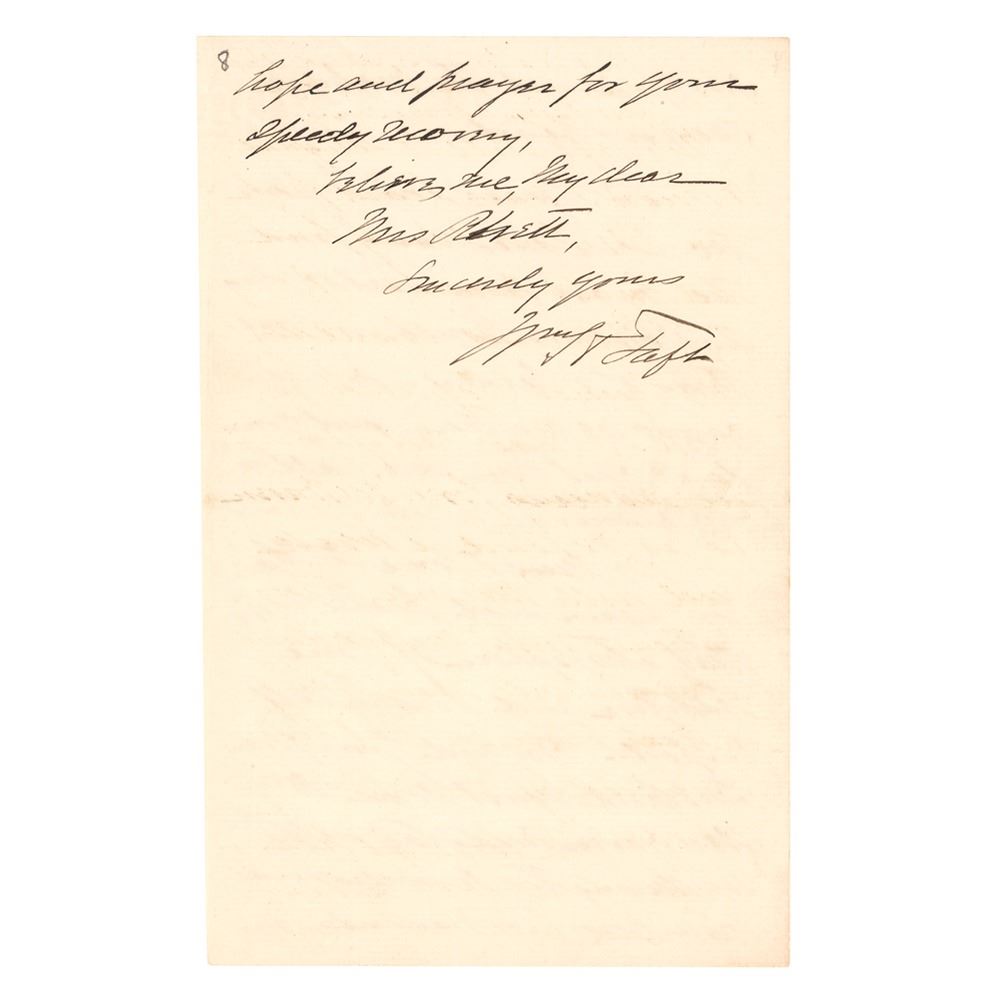 8
hope and prayer for your
speedy recovery,
believe me, My dear
Mrs Rhett,
Sincerely yours
Wm H Taft